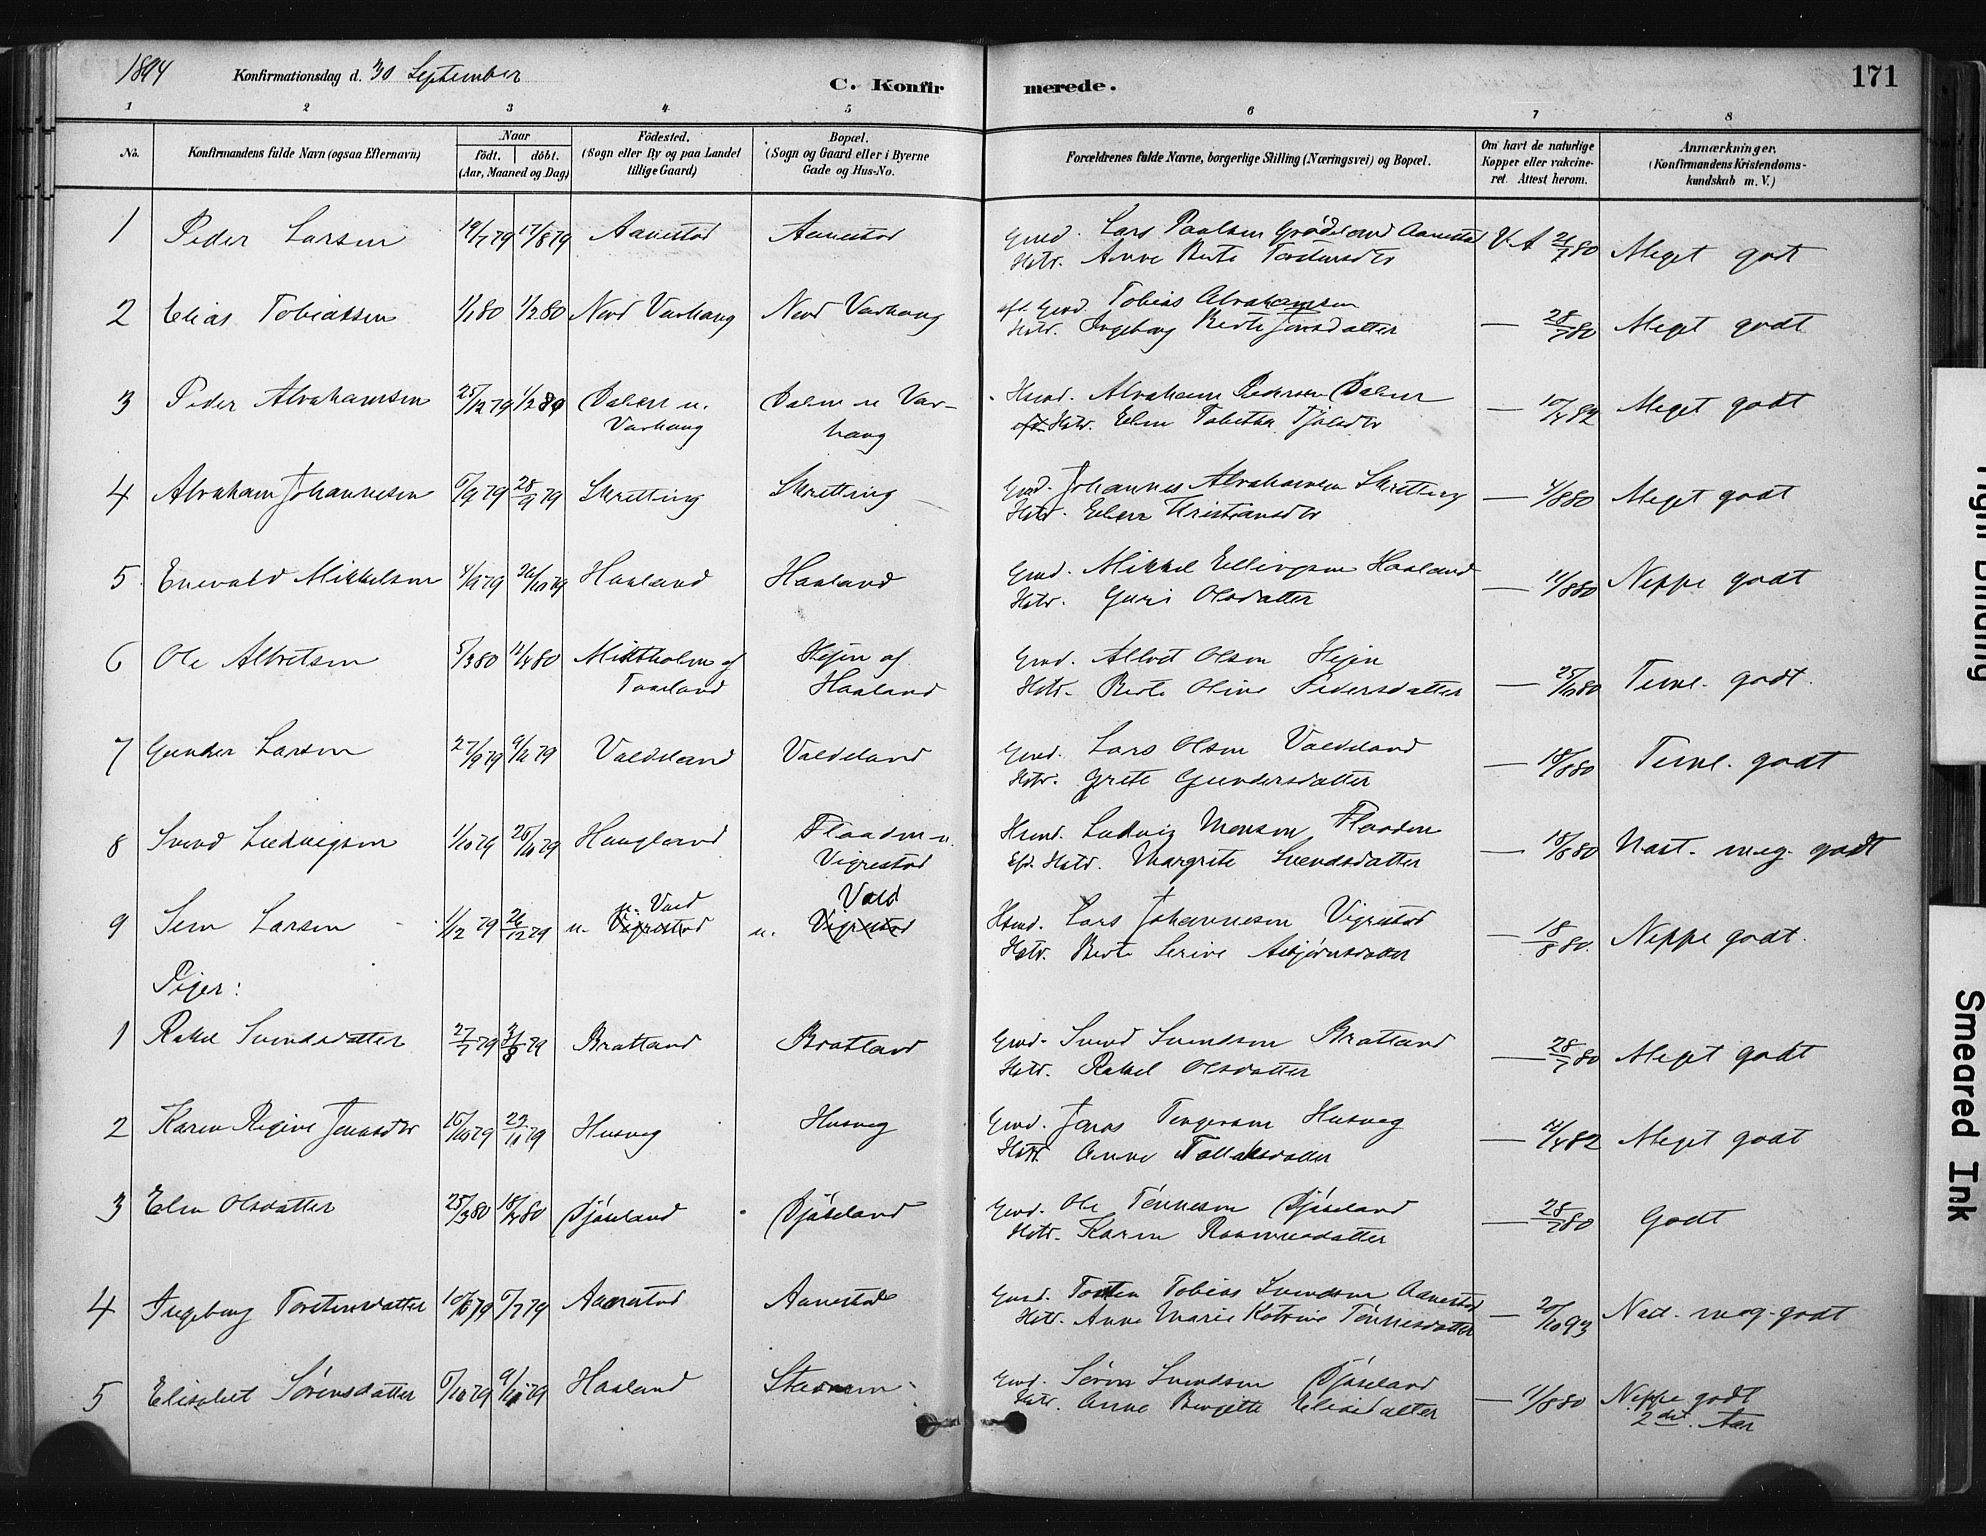 1894 Konfirmationsdag d. 30 September C. Konfirmerede. 171
1 2 3 4 5 6 7 8
No. Konfirmandens fulde Navn (ogsaa Efternavn) Naar födt. döbt. (Aar, Maaned og Dag) Födested. (Sogn eller By og paa Landet tillige Gaard) Bopæl. (Sogn og Gaard eller i Byerne Gade og Hus-No. Forældrenes fulde Navne, borgerlige Stilling (Næringsvei) og Bopæl. Om havt de naturlige Kopper eller vakcineret. Attest herom. Anmærkninger. (Konfirmandens Kristendomskundskab m. V.)
1 Peder Larsen 19/7 79 17/8 79 Aanestad Aanestad Gmd. Lars Paulsen Grødem Aanestad V. A 21/7 80 Meget godt
Hstr. Anne Berte Torstensdtr
2 Elias Tobiassen 1/1 80 1/2 80 Nord Varhaug Nord Varhaug aft. Gmd. Tobias Abrahamsen
Hstr. Ingeborg Berte Jonsdatter — 28/7 80 Meget godt
3 Peder Abrahamsen 25/12 79 1/2 80 Dalen u. Varhaug Dalen u Varhaug Hsmd. Abraham Pedersen Dalen — 10/4 82 Meget godt
Hstr. Elen Tabitha
4 Abraham Johannesen 6/9 79 28/9 79 Skretting Skretting Gmd. Johannes Abrahamsen Skretting — 4/8 80 Meget godt
Hstr. Elen Kristiansdtr
5 Enevald Mikkelsen 4/9 79 26/10 79 Haaland Haaland Gmd. Mikkel Ellingsen Haaland — 11/8 80 Neppe godt
Hstr. Guri Olsdatter
6 Ole Albretsen 5/3 80 11/4 80 Midtholm af Taaland Hejen af Haaland Gmd. Albret Olsen Hejen
Hstr. Berte Oline Pedersdatter — 25/10 80 Teml. godt.
7 Gunder Larsen 27/9 79 9/11 79 Valdeland Valdeland Gmd. Lars Olsen Valdeland — 18/8 80 Teml. godt
Hstr. Grete Gundersdatter
8 Svend Ludvigsen 1/10 79 26/10 79 Haugland Flaaden u. Vigrestad Hsmd. Ludvig Monsen Flaaden
Eft. Hstr. Margrete Svendsdatter — 18/8 80 Nast. meg. godt
9 Sem Larsen 1/12 79 26/12 79 u. Vold u. Vigrestad Vold u. Vigrestad Hsmd. Lars Johannesen Vigrestad — 18/8 80. Neppe godt.
Hstr. Berte Serine Asbjørnsdatter
Piger:
1 Rakel Svendsdatter 27/7 79 31/8 79 Bratland Bratland Gmd. Svend Svendsen Bratland — 28/7 80 Meget godt
Hstr. Rakel Olsdatter
2 Karen Regine Jonasdtr 15/10 79 23/11 79 Husveg Husveg Gmd. Jonas Torgersen Husveg — 12/4 82 Meget godt
Hstr. Anne Tollaksdatter
3 Elen Olsdatter 25/3 80 18/4 80 Djøseland Djøseland Gmd. Ole Tønnesen Djøseland — 28/7 80 Godt
Hstr. Karen Rasmusdatter
4 Ingeborg Torstensdatter 10/6 79 6/7 79 Aanestad Aanestad Gmd. Torsten Tobias Svendsen Aanestad — 20/10 93 Nast. meg. godt
Hstr. Anne Marie Katrine Tønnesdatter
5 Elisabet Sørensdatter 6/10 79 9/11 79 Haaland Gmd. Søren Svendsen Djøseland — 11/8 80 Neppe godt
Hstr. Anne Bergitte Eliasdatter 2det Aar
Tight Binding
Smeared Ink